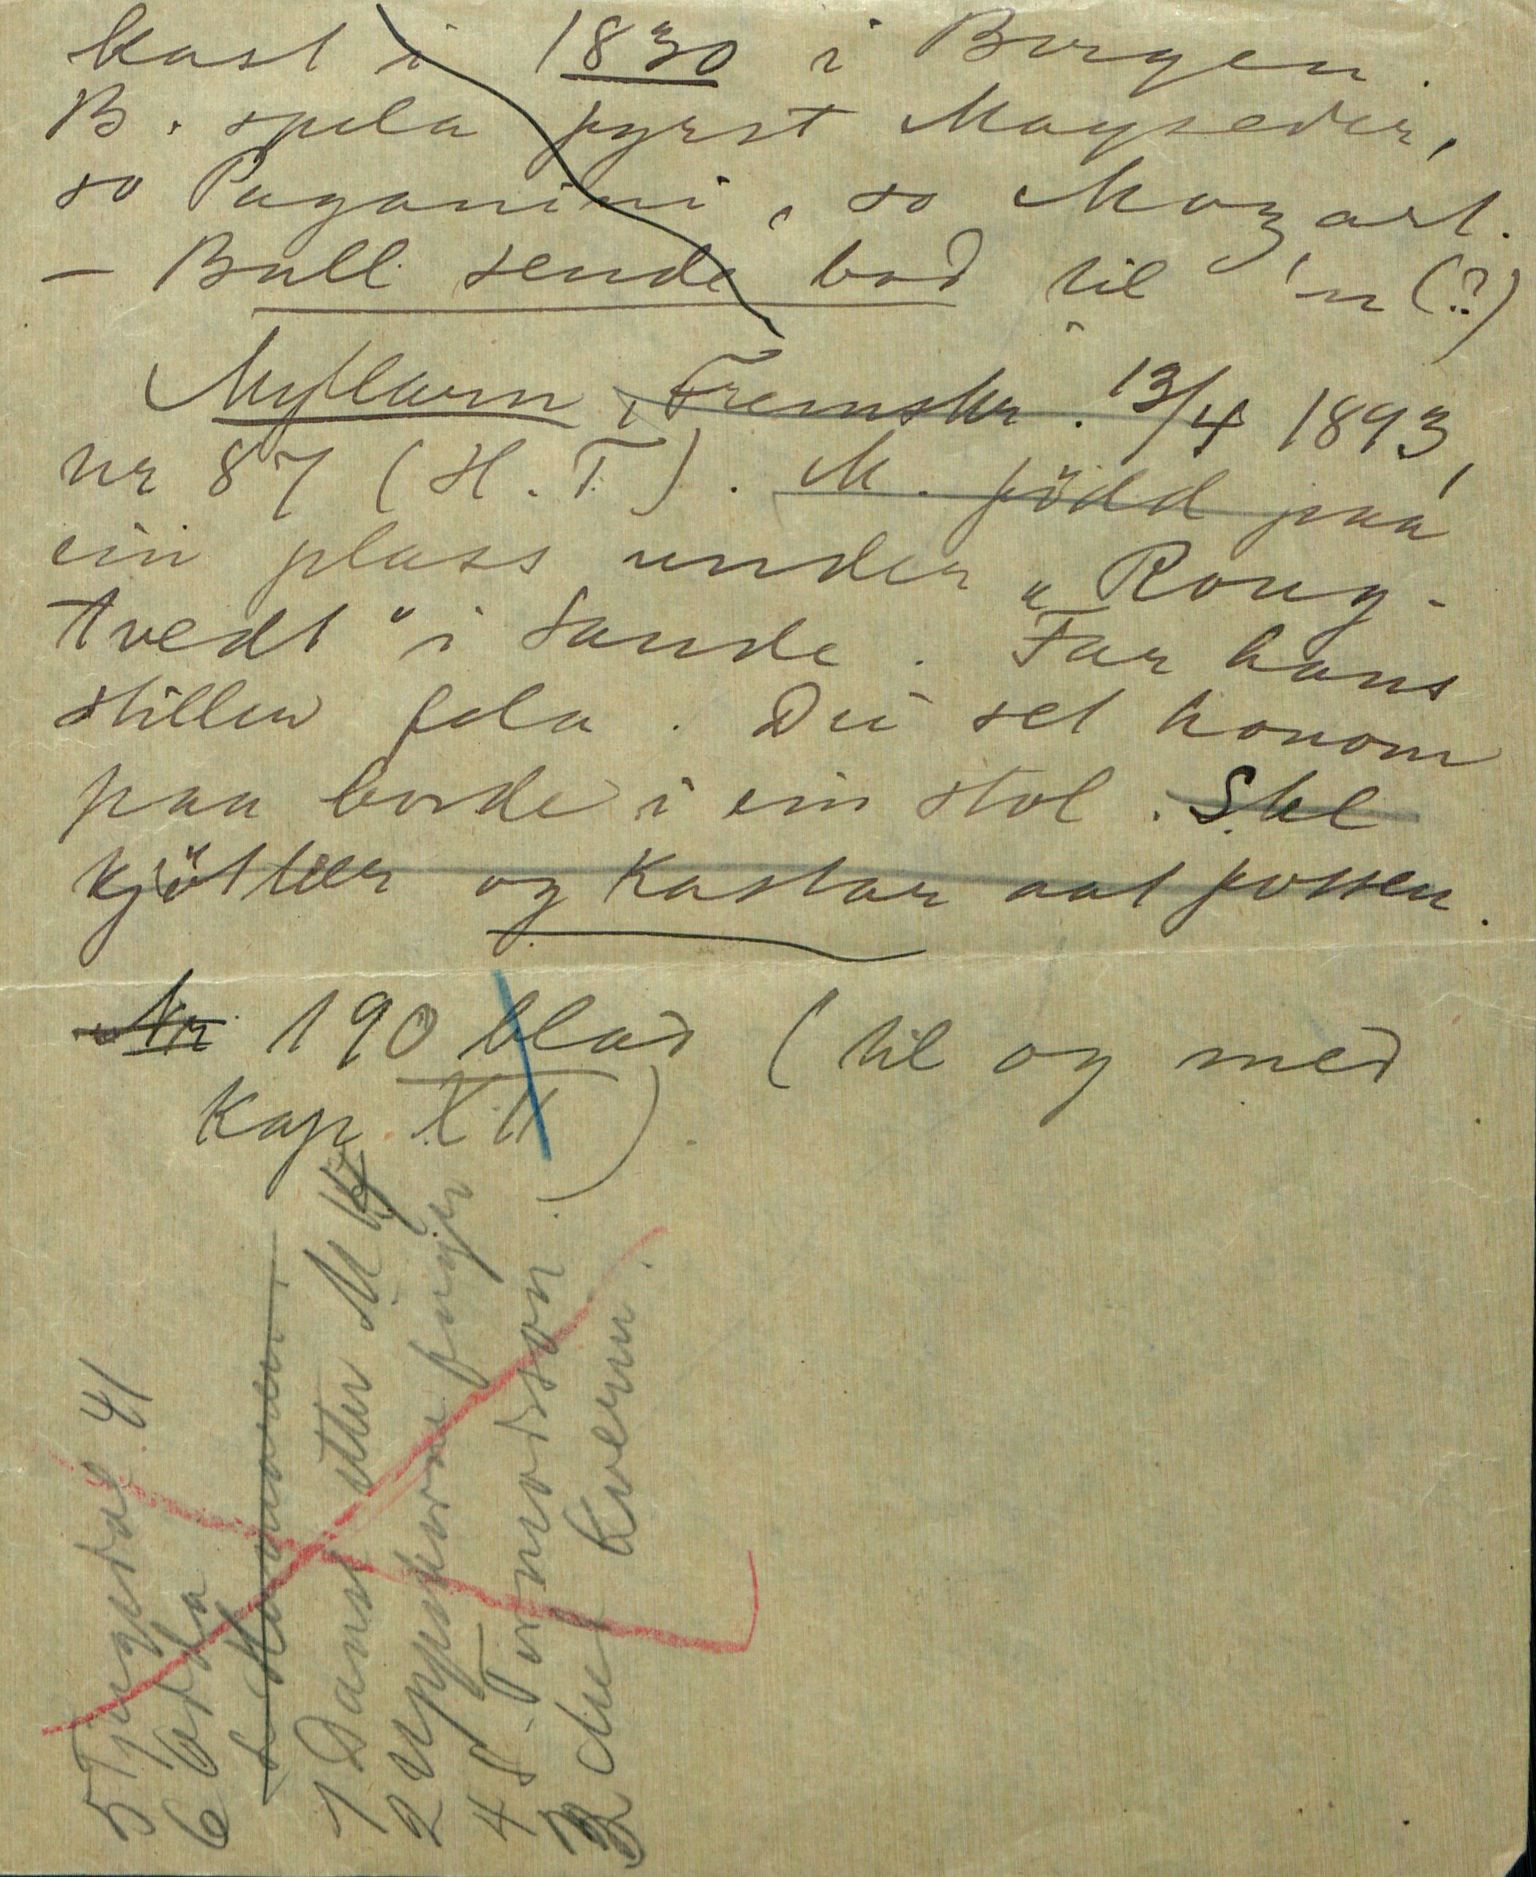 kast i 1830 i Bergen.
B. spela fyrst Mayseder,
so Paganini, so Mozart.
— Bull sende bod til 'n (?)
Myllarn, Fremskr. 13/4 1893,
nr 87 (H. T.). M. född paa
ein plass under „Rong-
tvedt" i Sande. Far hans
stillew fela. Dei set honom
paa borde i ein stol. Skl
kjöttær og Kastar aat possen.
Nr 190 blad (til og med
Kap. XII).
5 Tjugedal 41
6 Odda
1 Dans etter M
2
4 S. Tormodsson
3 Kvern.